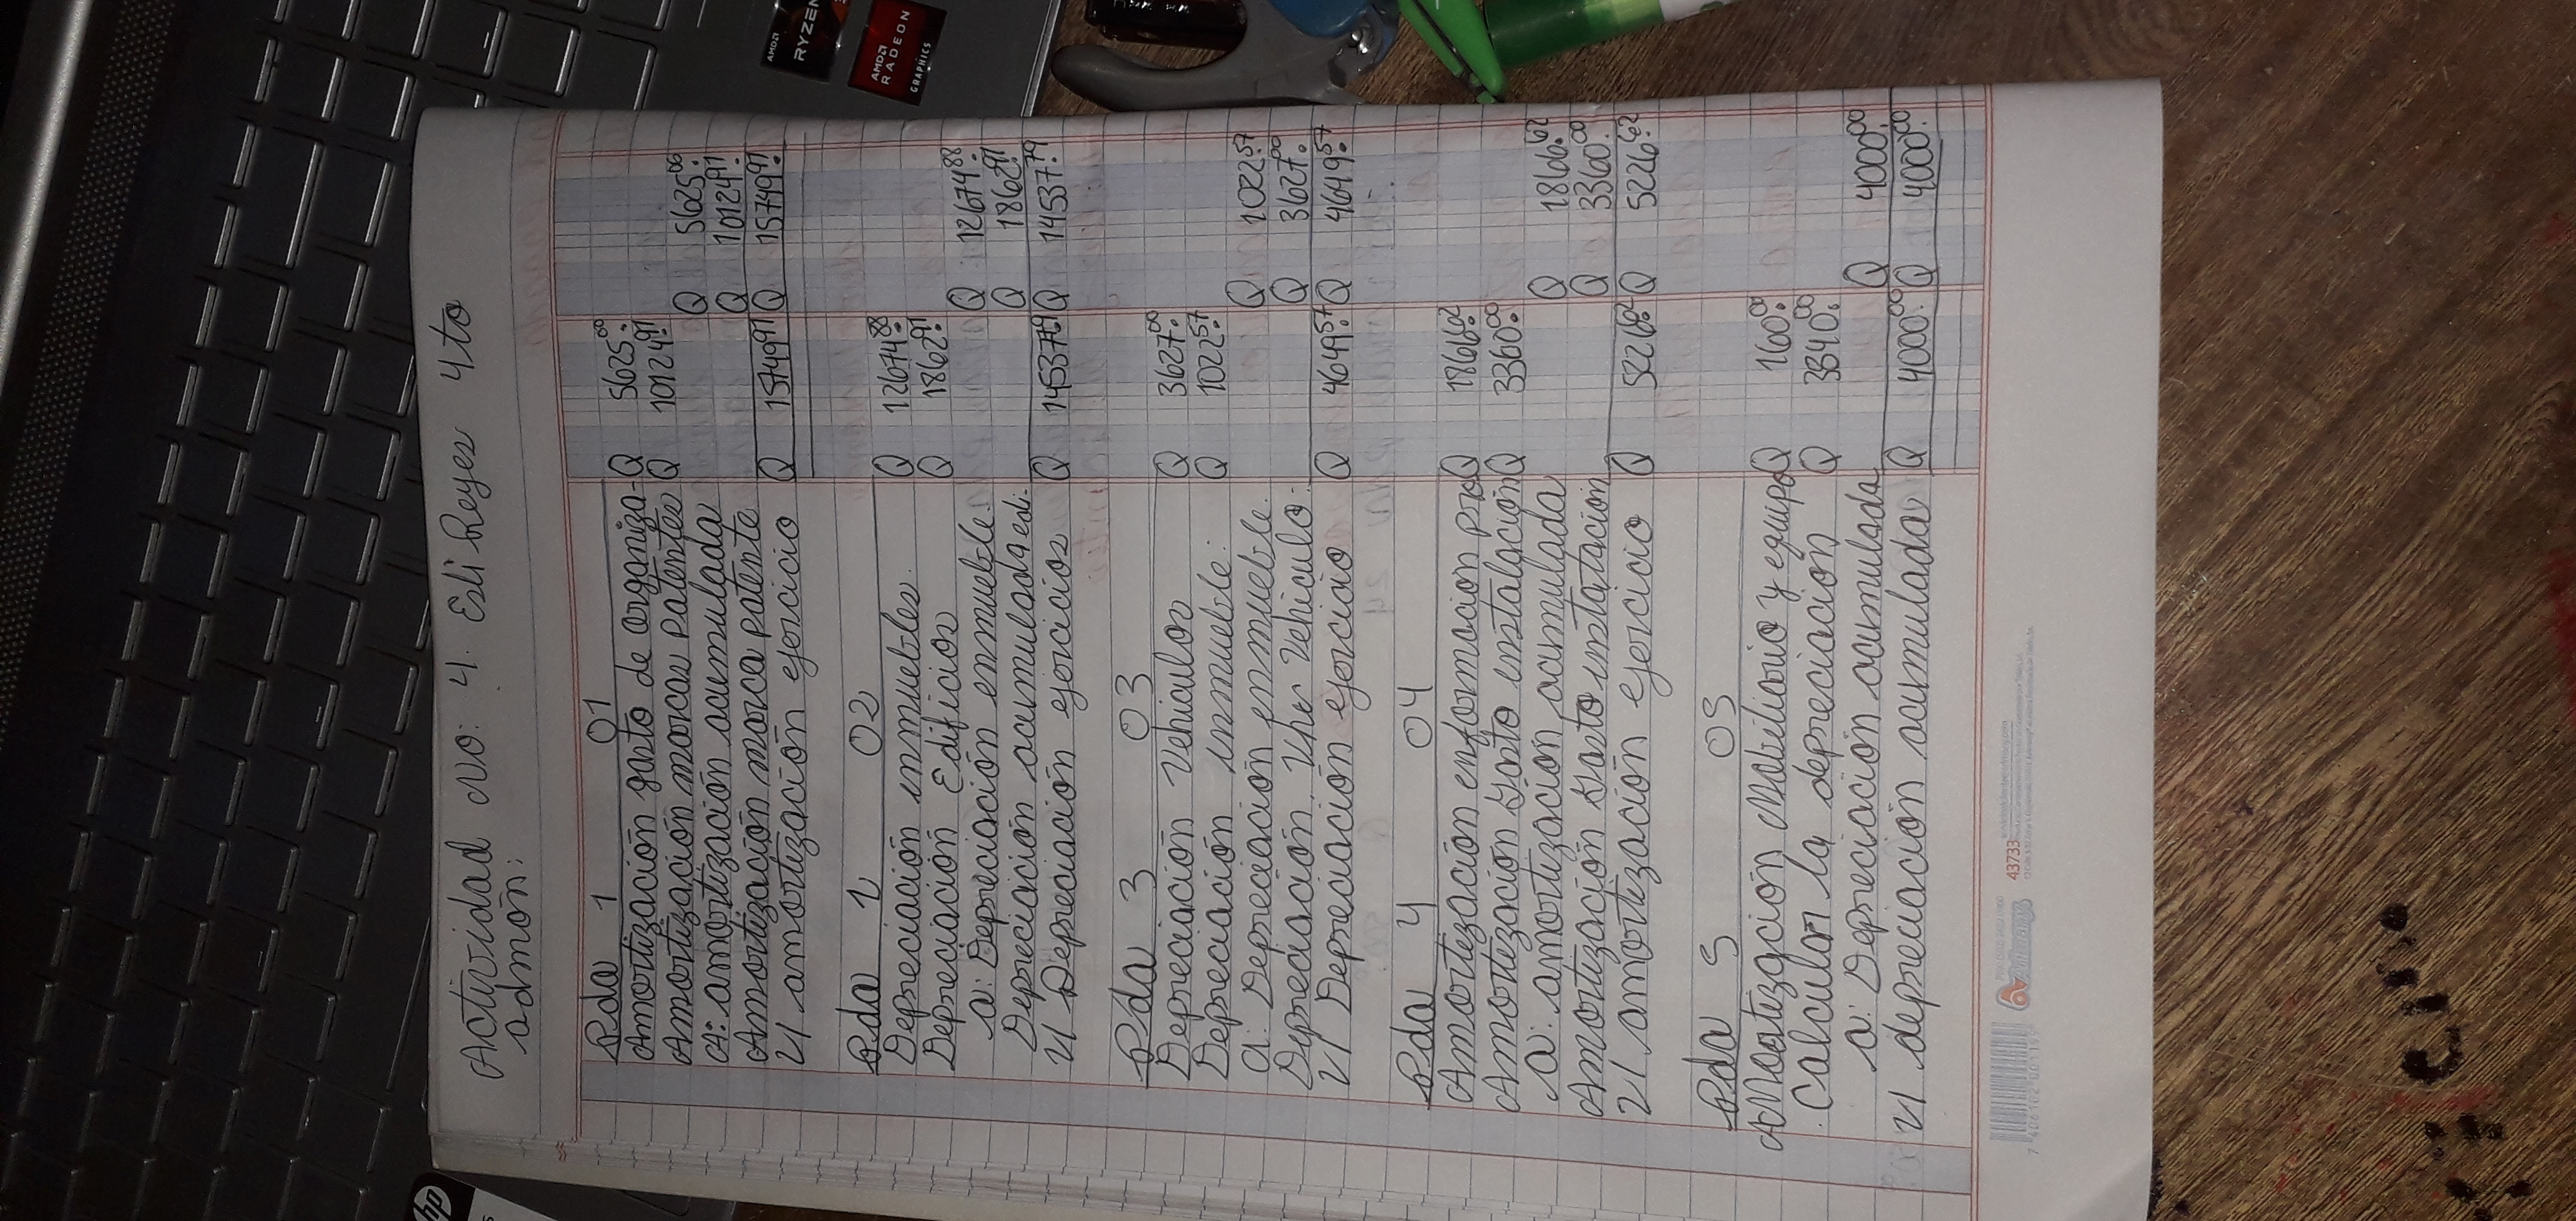 Actividad No: 4. Esli Reyes 4to
admón:
Pda 1 01
Amortización gasto de Organiza- Q 5625.00
Amortización marcas patentes Q 10124.97
A: amortización acumulada Q 5625.00
Amortización marca patente Q 10124.97
V/ amortización ejercicio Q 15749.97 Q 15749.97
Pda 2 02
Depreciación inmuebles. Q 12674.88
Depreciación Edificios Q 1862.91
a: Depreciación inmueble. Q 12674.88
Depreciación acumulada edi. Q 1862.91
V/ Depreciación ejercicios Q 14537.79 Q 14537.79
Pda 3 03
Depreciación Vehiculos Q 3627.00
Depreciación inmueble. Q 1022.57
a: Depreciación inmueble. Q 1022.57
Depreciación Vehiculo. Q 3627.00
V/ Depreciación ejercicio Q 4649.57 Q 4649.57
Pda 4 04
Amortización información pro Q 1866.62
Amortización Gasto instalación Q 3360.00
a: amortización acumulada Q 1866.62
Amortización Gasto instatación Q 3360.00
V/ amortización ejercicio Q 5226.62 Q 5226.62
Pda 5 05
Amortización Mobiliario y equipo Q 160.00
Calcular la depreciación Q 3340.00
a: Depreciación acumulada Q 4000.00
V/ depreciación acumulada Q 4000.00 Q 4000.00
43733
AMD
RYZEN
AMD
RADEON
GRAPHICS
hp